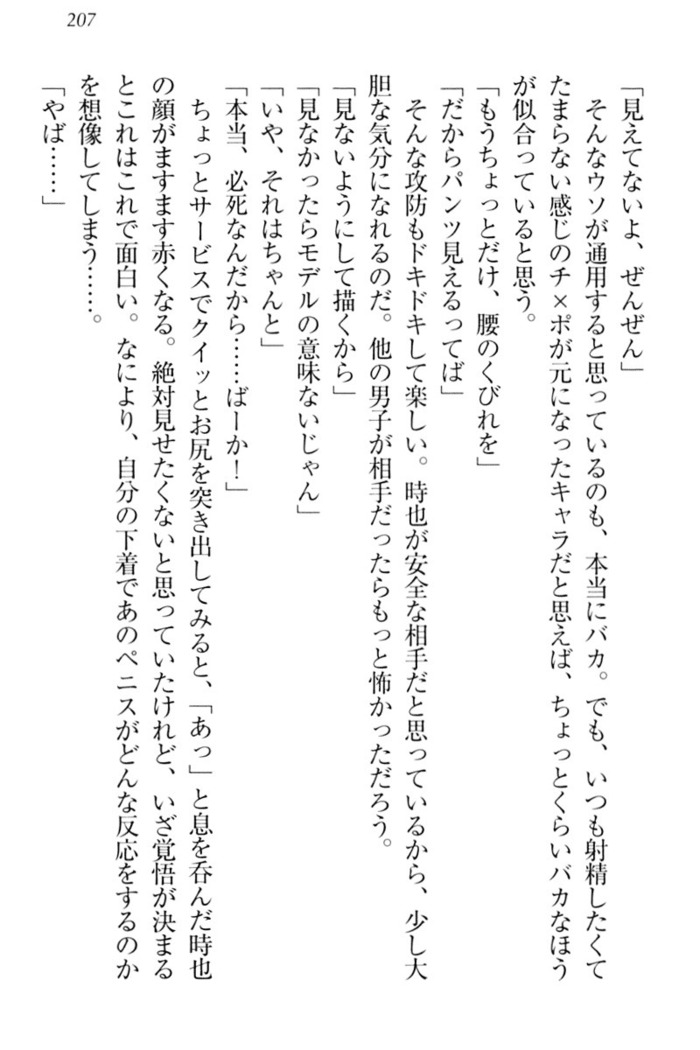 207
「見えてないよ、ぜんぜん」
そんなウソが通用すると思っているのも、本当にバカ。でも、いつも射精したくて
たまらない感じのチ×ポが元になったキャラだと思えば、ちょっとくらいバカなほう
が似合っていると思う。
「もうちょっとだけ、腰のくびれを」
「だからパンツ見えるってば」
そんな攻防もドキドキして楽しい。時也が安全な相手だと思っているから、少し大
胆な気分になれるのだ。他の男子が相手だったらもっと怖かっただろう。
「見ないようにして描くから」
「見なかったらモデルの意味ないじゃん」
「いや、それはちゃんと」
「本当、必死なんだから……ばーか!」
ちょっとサービスでクイッとお尻を突き出してみると、「あっ」と息を呑んだ時也
の顔がますます赤くなる。絶対見せたくないと思っていたけれど、いざ覚悟が決まる
とこれはこれで面白い。なにより、自分の下着であのペニスがどんな反応をするのか
を想像してしまう……。
「やば……」